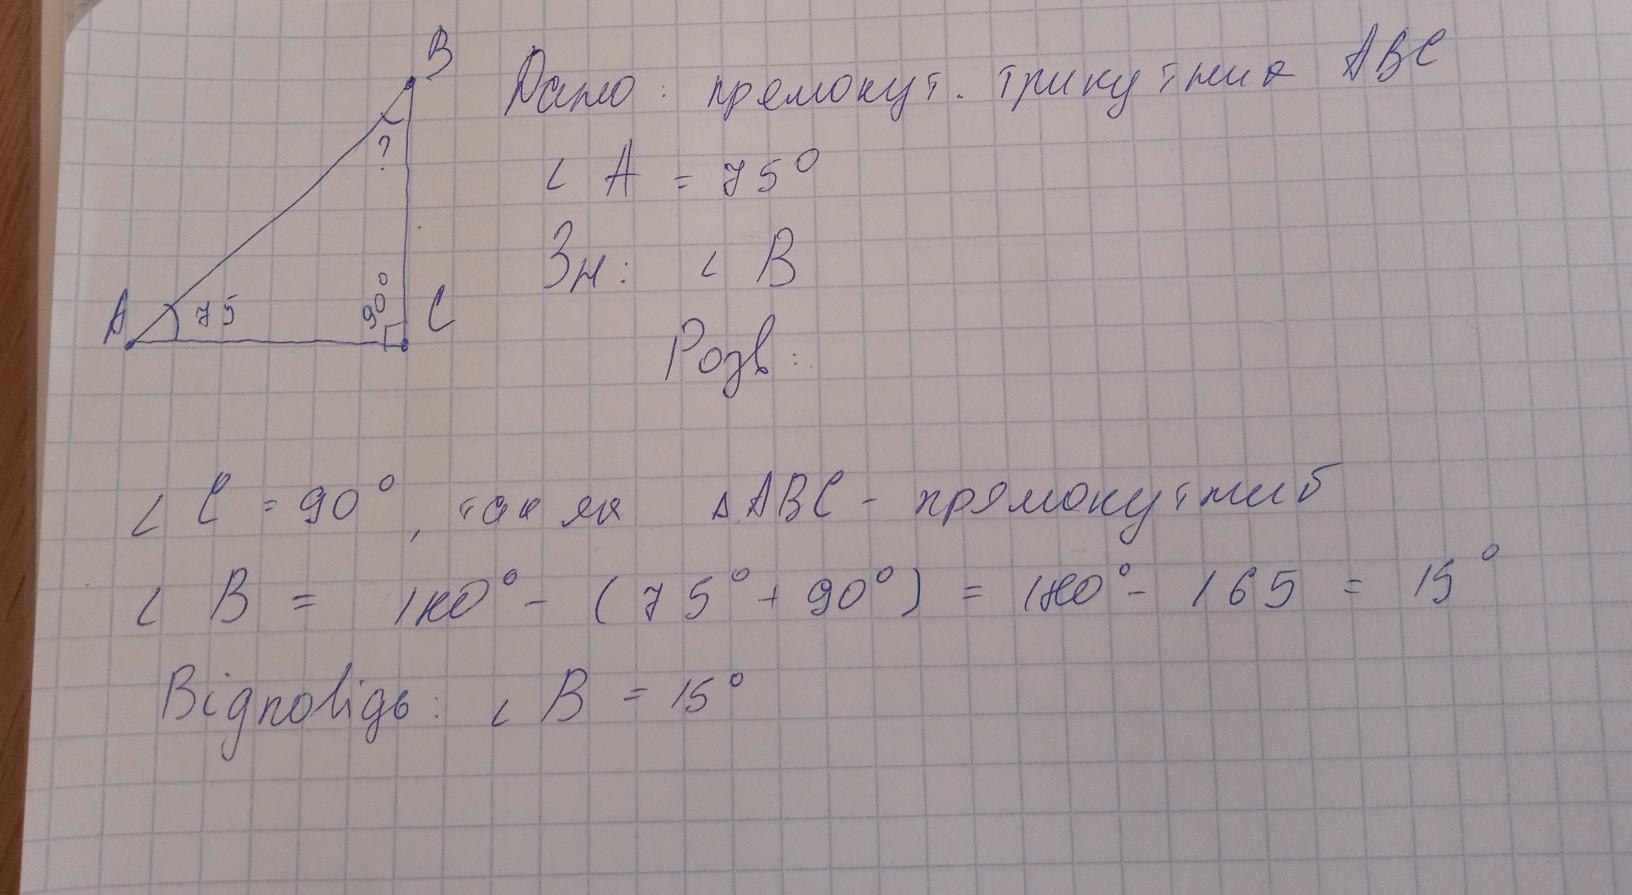 B
Дано: прямокут. трикутник ABC
?
∠ A = 75°
Зн: ∠ B
A 75 90° C
Розв:
∠ C = 90°, так як ΔABC - прямокутний
∠ B = 180° - (75° + 90°) = 180° - 165 = 15°
Відповідь: ∠ B = 15°